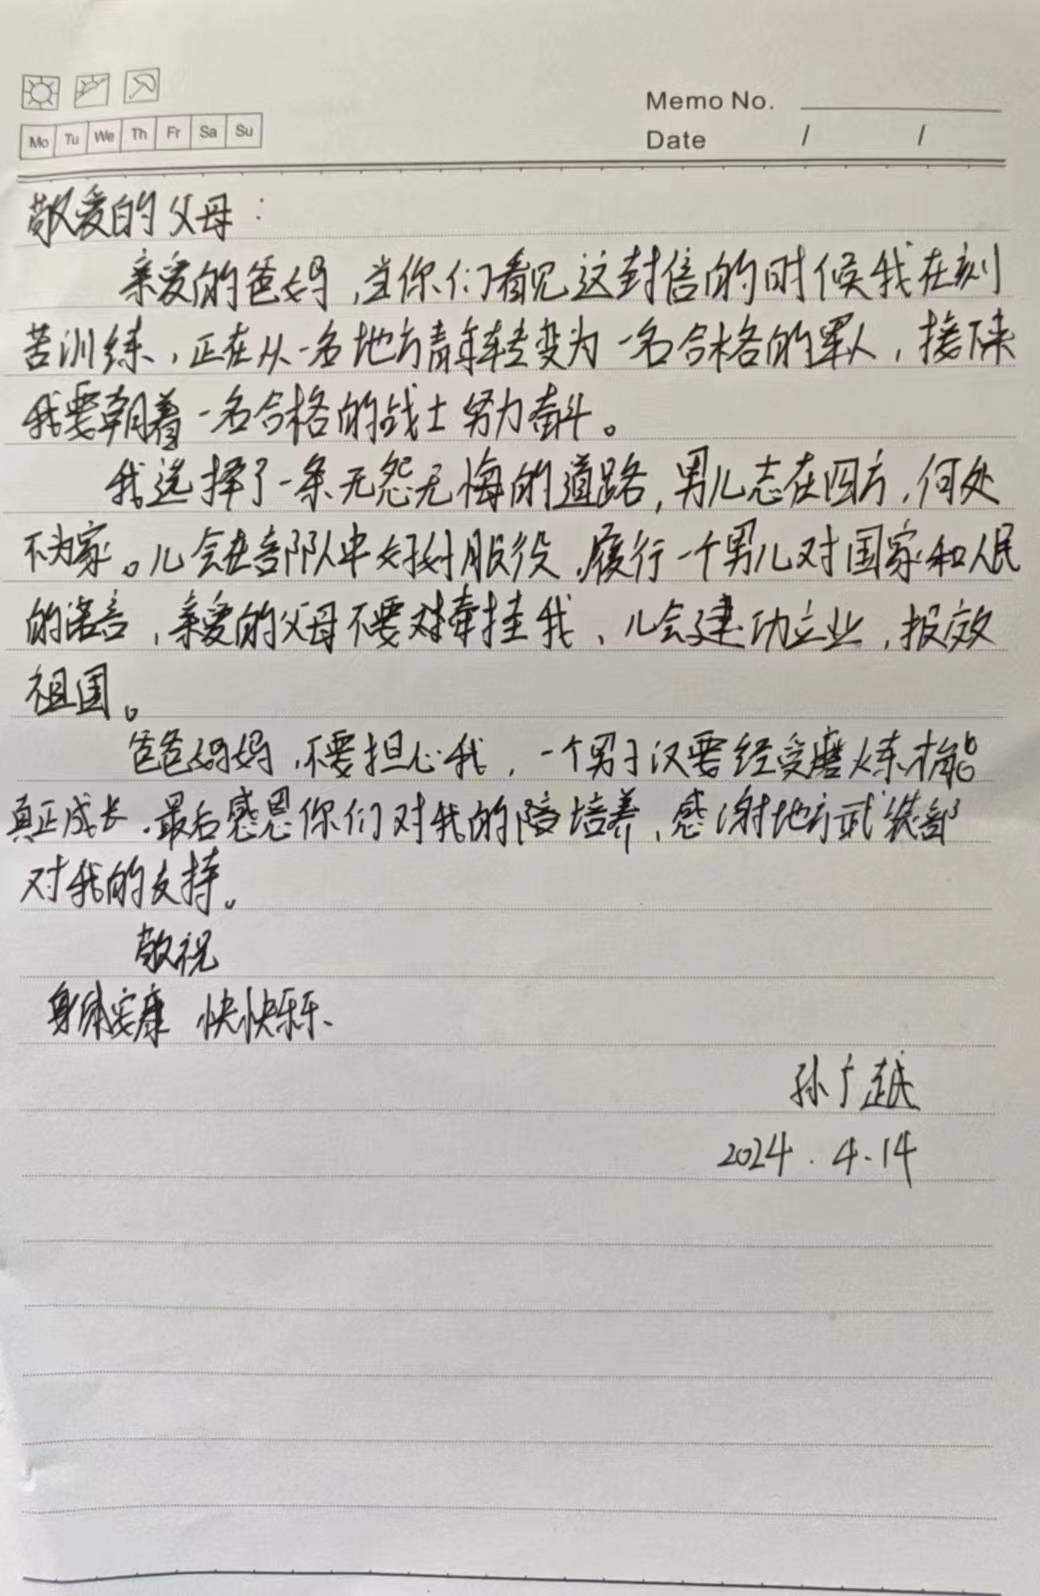 Memo No.
Mo Tu We Th Fr Sa Su
Date / /
敬爱的父母：
亲爱的爸妈，当你们看见这封信的时候我在刻
苦训练，正在从一名地方青年转变为一名合格的军人，接下来
我要朝着一名合格的战士努力奋斗。
我选择了一条无怨无悔的道路，男儿志在四方，何处
不为家。儿会在部队中好好服役，履行一个男儿对国家和人民
的诺言，亲爱的父母不要对牵挂我、儿会建功立业，报效
祖国。
爸爸妈妈，不要担心我，一个男子汉要经受磨炼才能
真正成长。最后感恩你们对我的陪培养，感谢地方武装部
对我的支持。
敬祝
身体安康 快快乐乐、
孙广越
2024.4.14